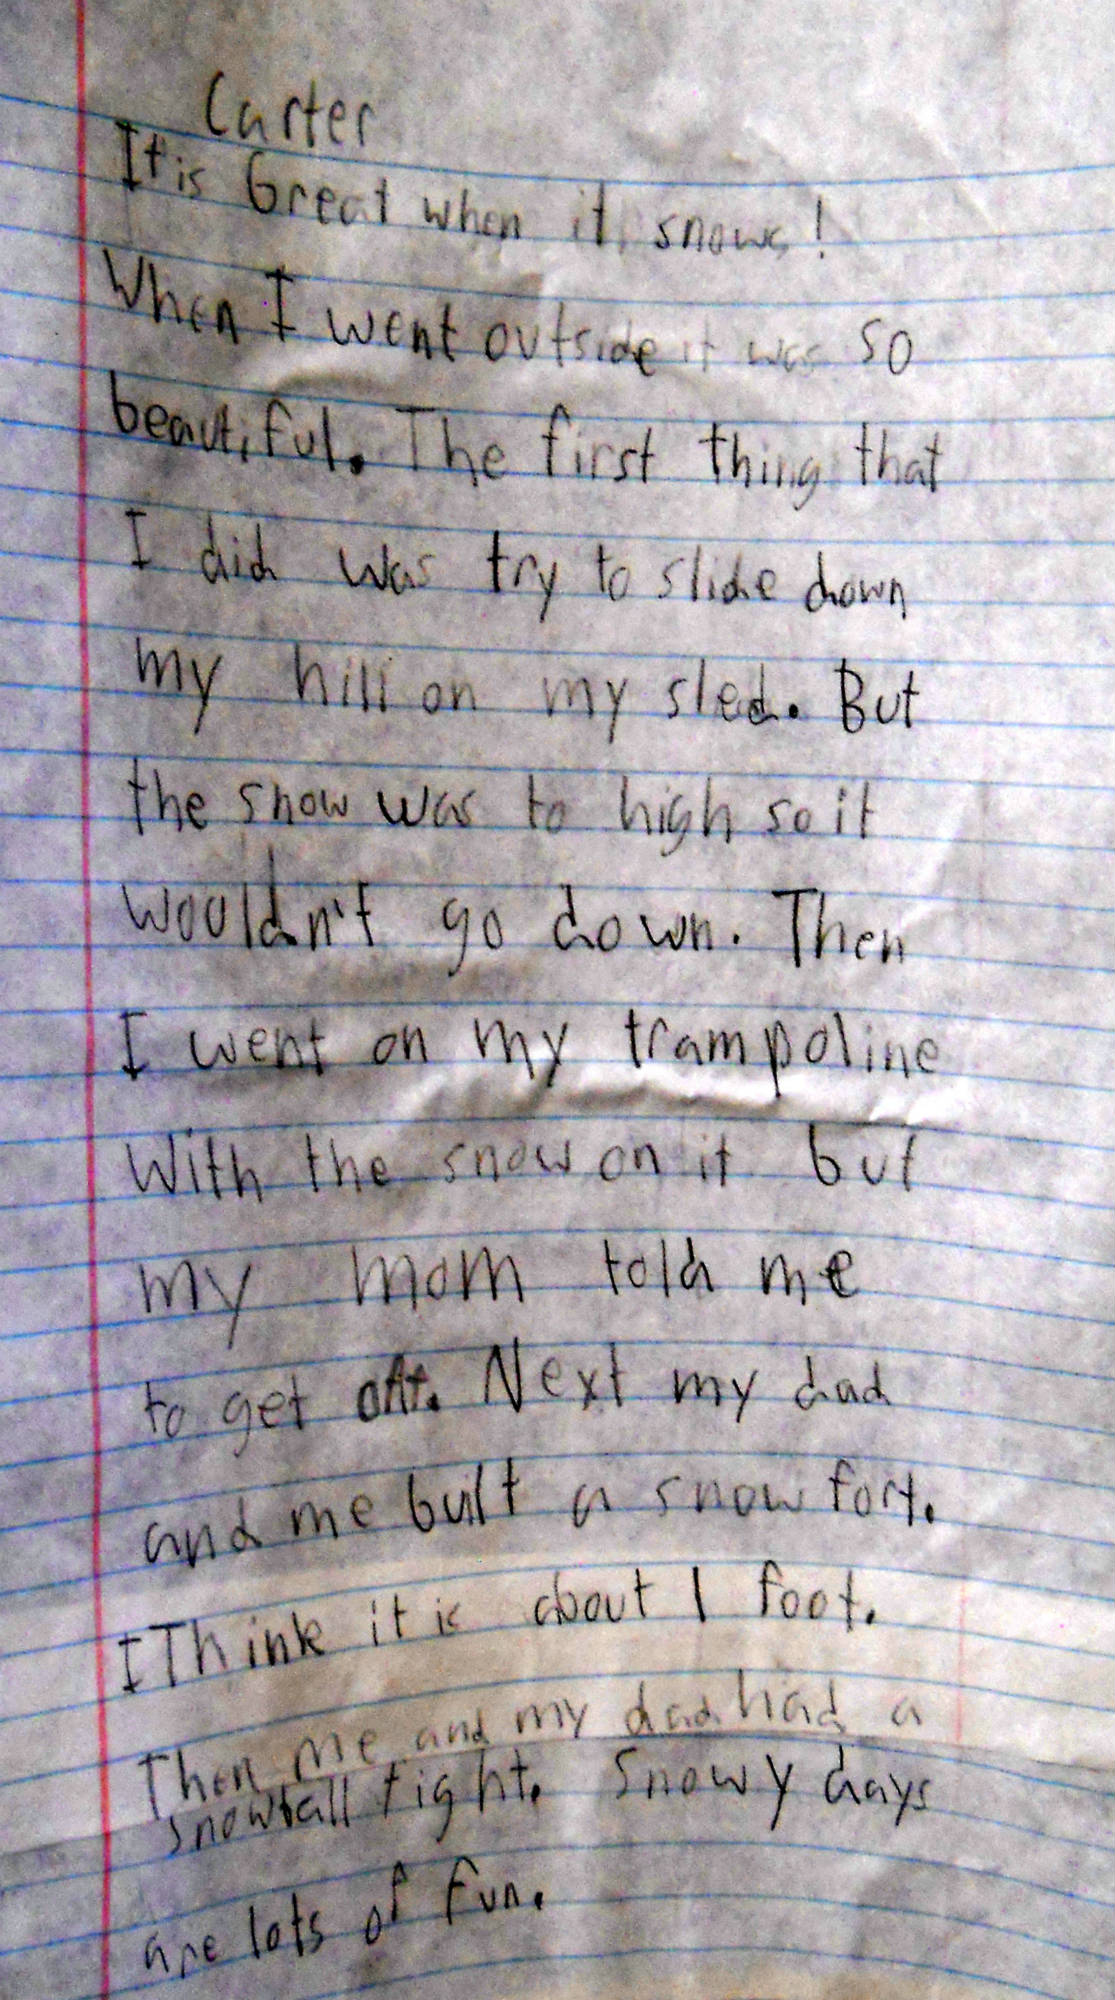 Carter
It is Great when it snows!
When I went outside it was so
beautiful. The first thing that
I did was try to slide down
my hill on my sled. But
the snow was to high so it
wouldn't go down. Then
I went on my trampoline
With the snow on it but
my mom told me
to get off. Next my dad
and me built a snow fort.
I Think it is about 1 foot.
Then me and my dad had a
snowball fight. Snowy days
are lots of fun.